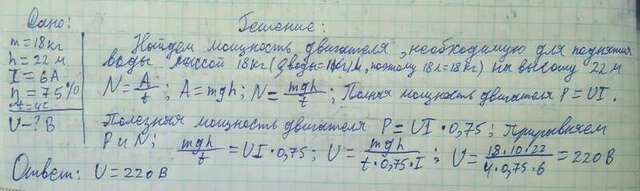 Дано:
m=18кг
h=22м
I=6А
η=75%
t=4с
U-?В
Решение:
Найдем мощность двигателя, необходимую для поднятия
воды массой 18кг (, поэтому 18л=18кг) на высоту 22м
N=A/t; A=mgh; N=mgh/t; Полная мощность двигателя P=UI.
Полезная мощность двигателя P=UI·0,75; Приравниваем
P и N: mgh/t=UI·0,75; U=mgh/t·0,75·I; U=18·10·22/4·0,75·6=220В
Ответ: U=220В